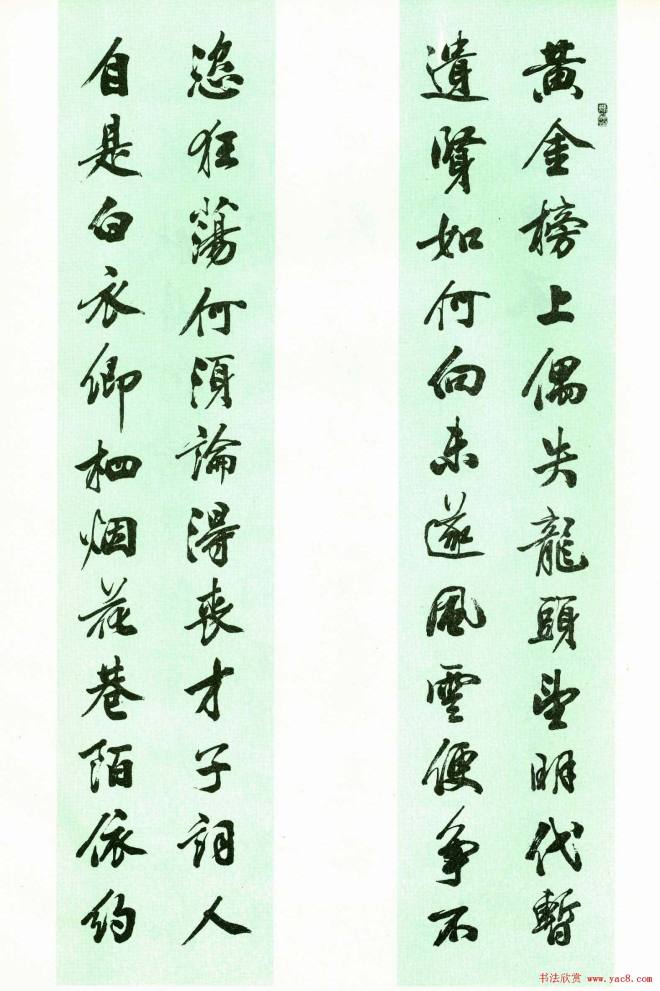 黄金榜上偶失龍頭望明代暫
遺賢如何向未遂風雲便争不
恣狂蕩何須論得喪才子詞人
自是白衣卿相烟花巷陌依約
书法欣赏 www.yac8.com